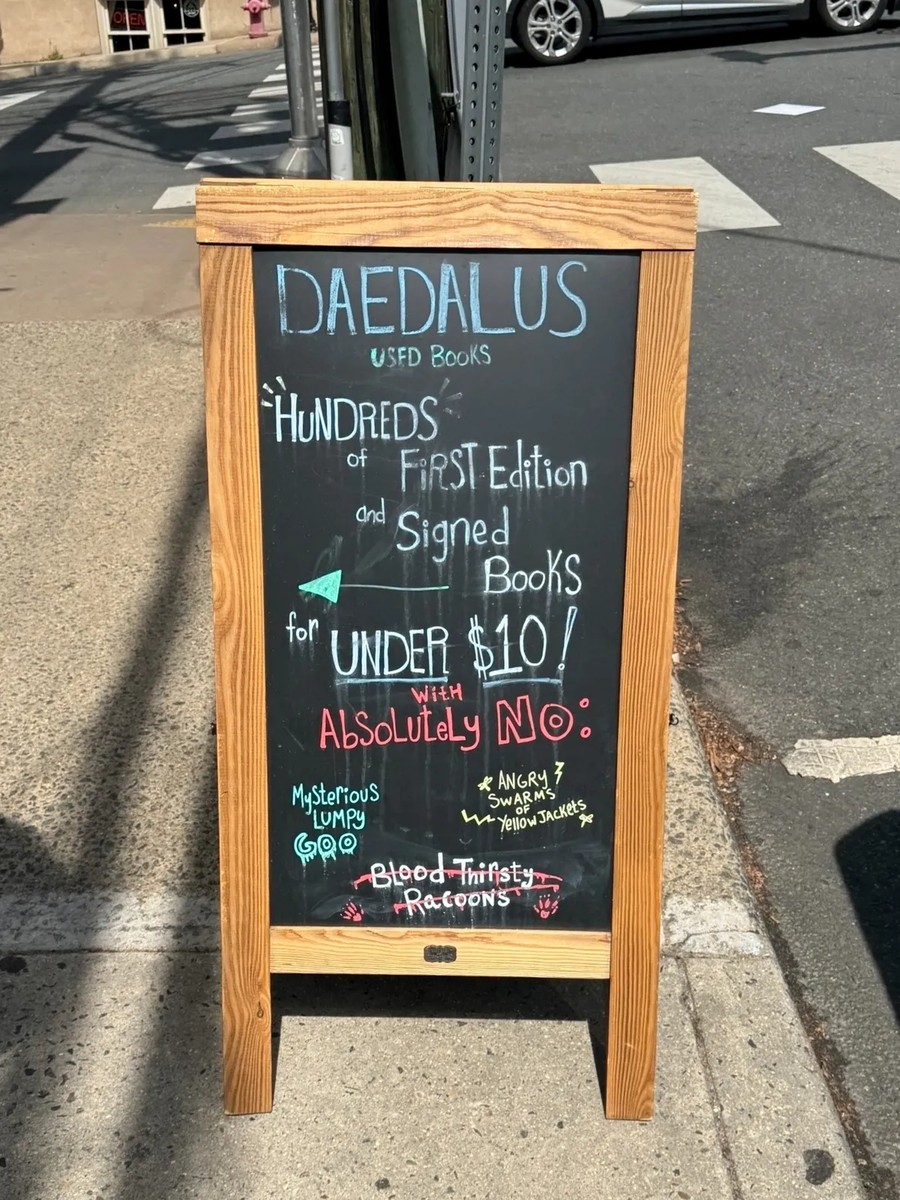 OPEN
DAEDALUS
USED BOOKS
HUNDREDS
of FIRST Edition
and Signed
BOOKS
for UNDER $10!
WITH
AbSOLUTELY NO:
MySTERIOUS
LUMPY
GOO
ANGRY
SWARMS
OF
Yellow JACKETS
Blood Thirsty
RACOONS